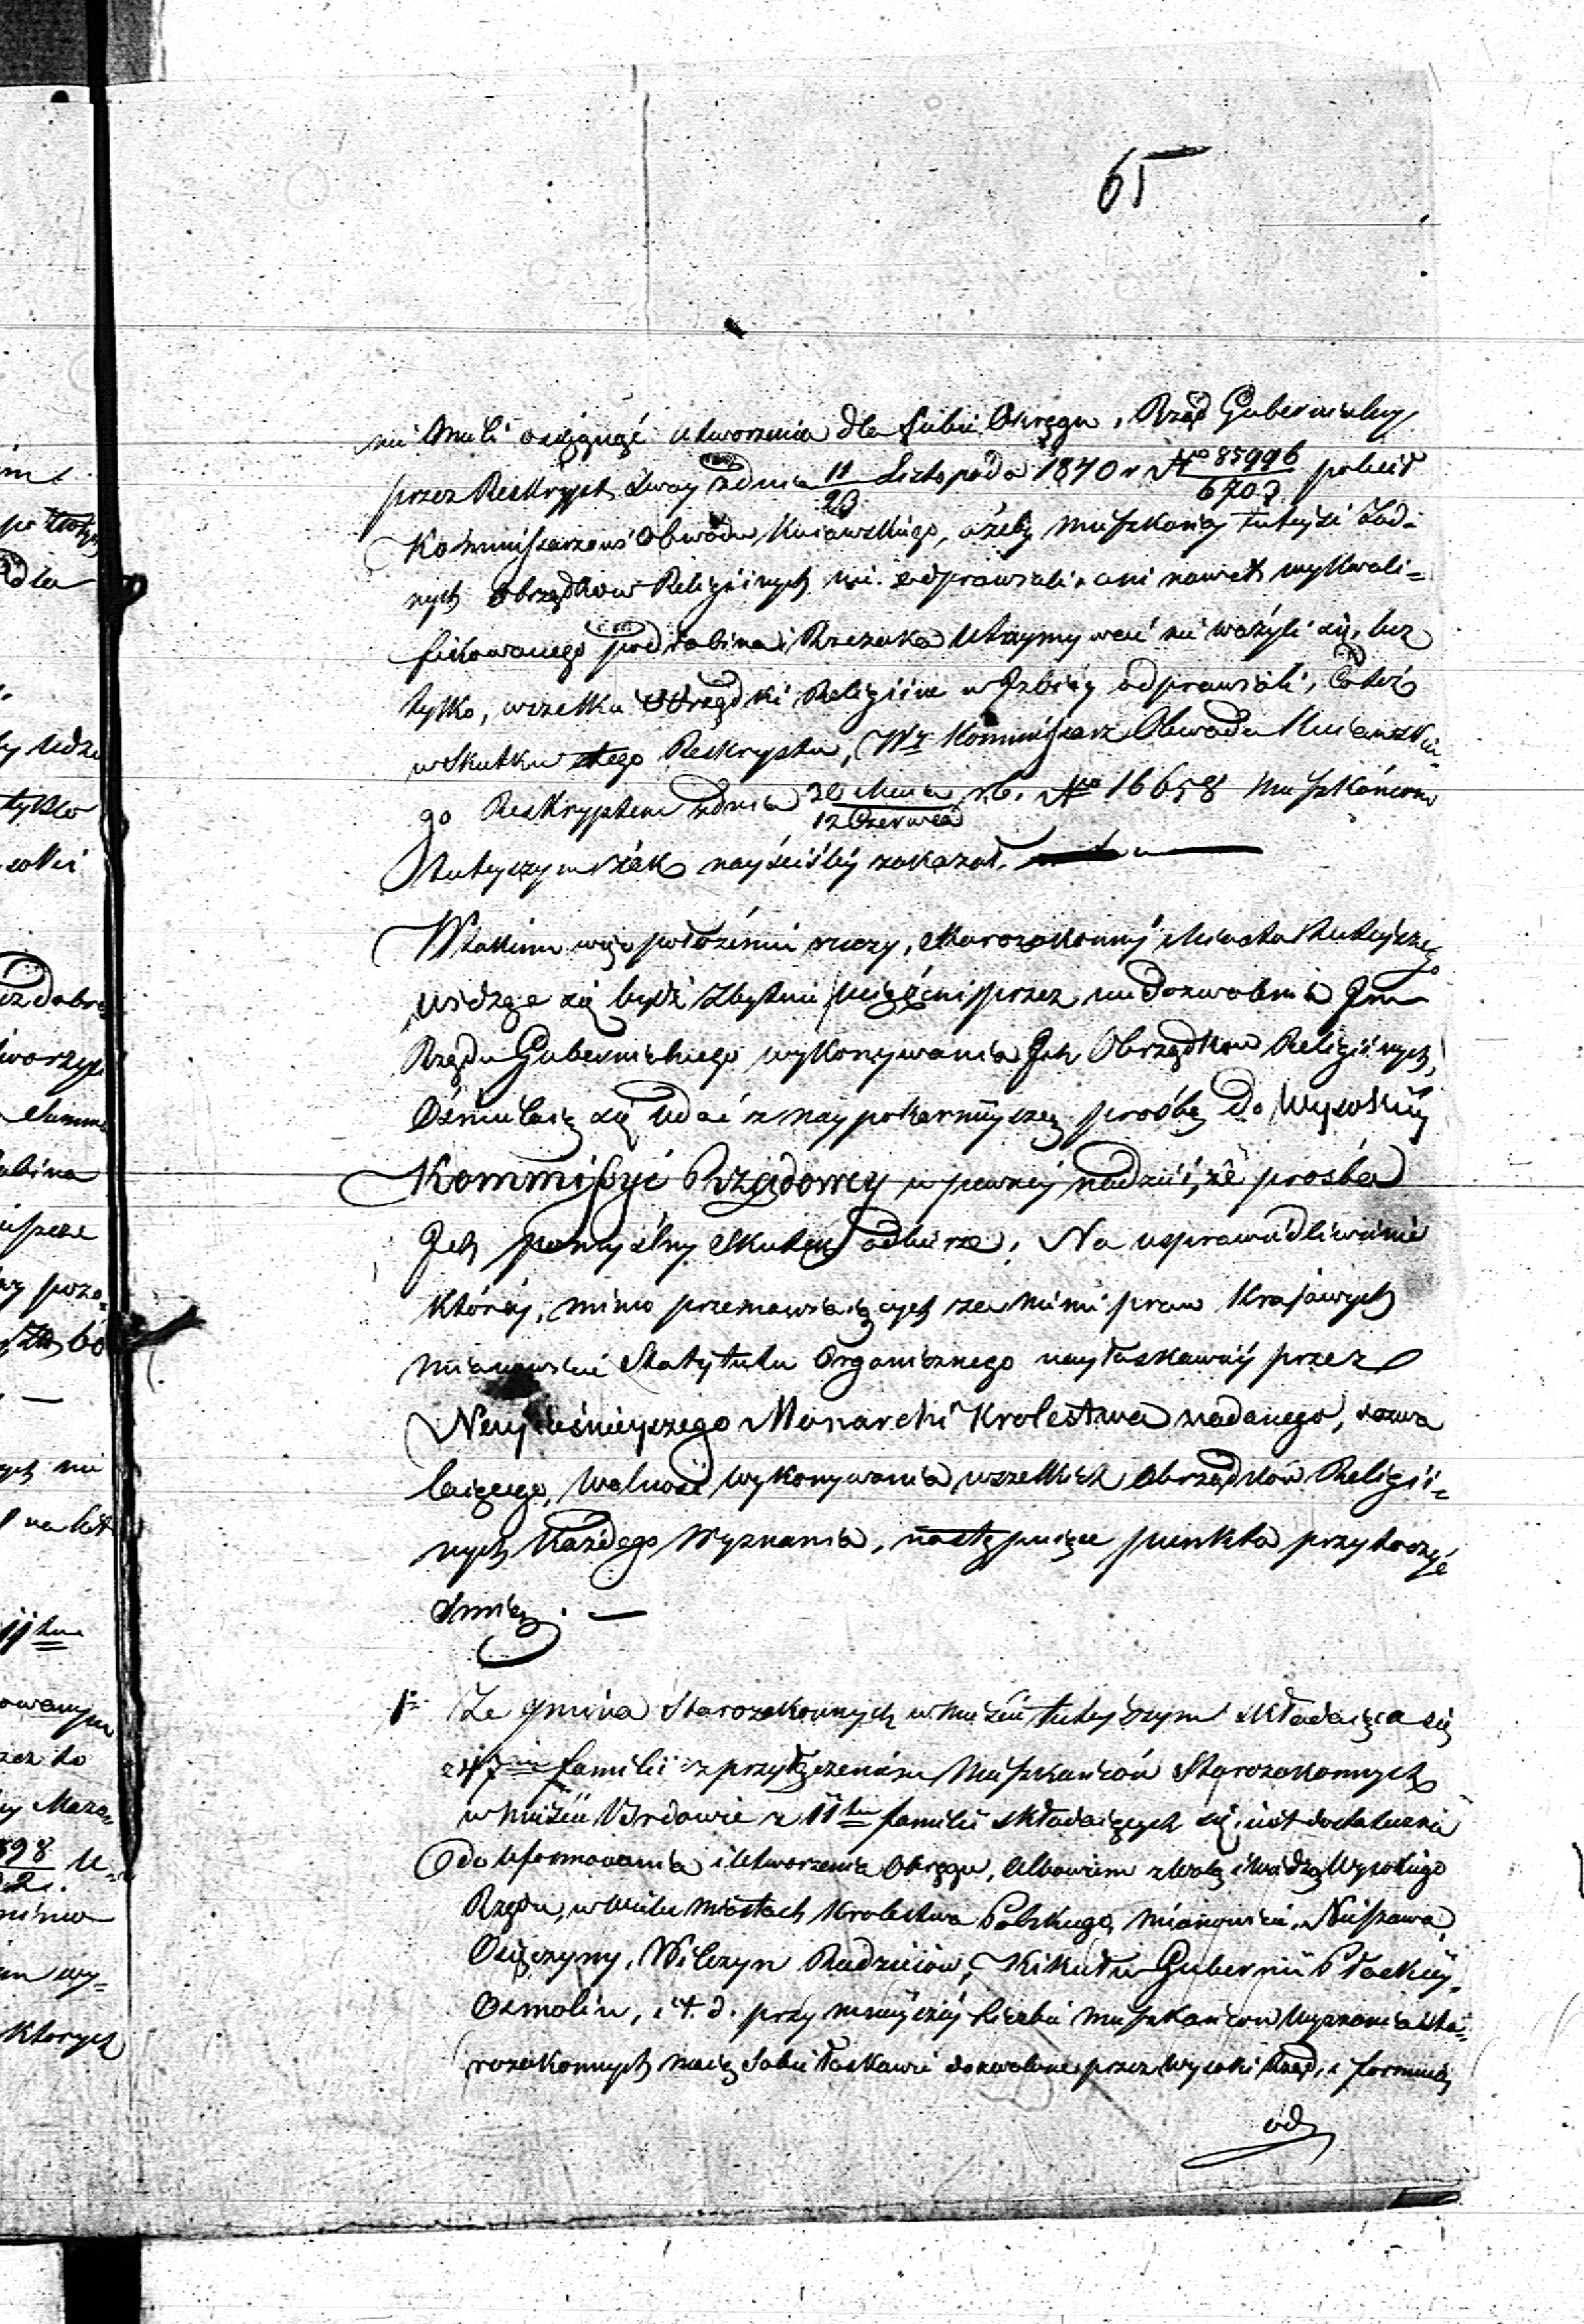 65
nie mieli osiągnąć utworzenia dla siebie Okręgu, Rząd Gubernialny
przez Reskrypt swoy z dnia 11/23 Listopada 1840 r No 85996/6703 polecił
Kommissarzowi Obwodu Kujawskiego, ażeby mieszkańcy tuteysi żad-
nych obrzędków Religiinych nie odprawiali, ani nawet wykwali=
fikowanego podrabina i Rzezaka utrzymywać nie ważyli się, lecz
tylko, wszelkie Obrządki Religiine w Izbicy odprawiali, Co też
w skutku tego Reskryptu, Wy Kommissarz Obwodu Kujawskie-
go Reskryptem z dnia 30 Maia/12 Czerwca r.b. No 16658 mieszkańcom
tuteyszym jak nayściśley zakazał.
W takim więc położeniu rzeczy, starozakonni Miasta tuteyszego
widząc się bydź zbytnie przez niedozwolenie Im
Rządu Gubernialnego wykonywania Ich Obrządków Religiinych,
Ośmielaią się udać z naypokornieyszą prośbą do Wysokiey
Kommissyi Rządowey w pewney nadziei, że prośba
Ich pomyślny skutek odbierze. Na usprawiedliwienie
którey, mimo przemawiaiących za niemi praw Krajowych
mianowicie Statytutu Organicznego nayłaskawiey przez
Nayiaśnieyszego Monarchi Krolestwa nadanego, dozwa
laiącego, wolność wykonywania wszelkich Obrządków Religii=
nych każdego Wyznania, następuiące punkta przytoczyć
śmieią. —
1o. Że gmina Starozakonnych w mieście tuteyszym składaiąca się
z 47miu familii z przyłączeniem Mieszkańców Starozakonnych
w mieście Brdowie z 11tu familii składaiących się, iest dostateczna
do uformowania i utworzenia Okręgu, albowiem z wolą i wiedzą Wysokiego
Rządu, w wielu miastach Krolestwa Polskiego, mianowicie, Nieszawa,
Osięczyny, Wilczyn Radzieiów, Kikuł w Gubernii Płockiey,
Osmolin, i t. d. przy mnieyszey liczbie mieszkańców Wyznania sta=
rozakonnych maią sobie łaskawie dozwolone przez Wysoki Rząd, i formuią
od